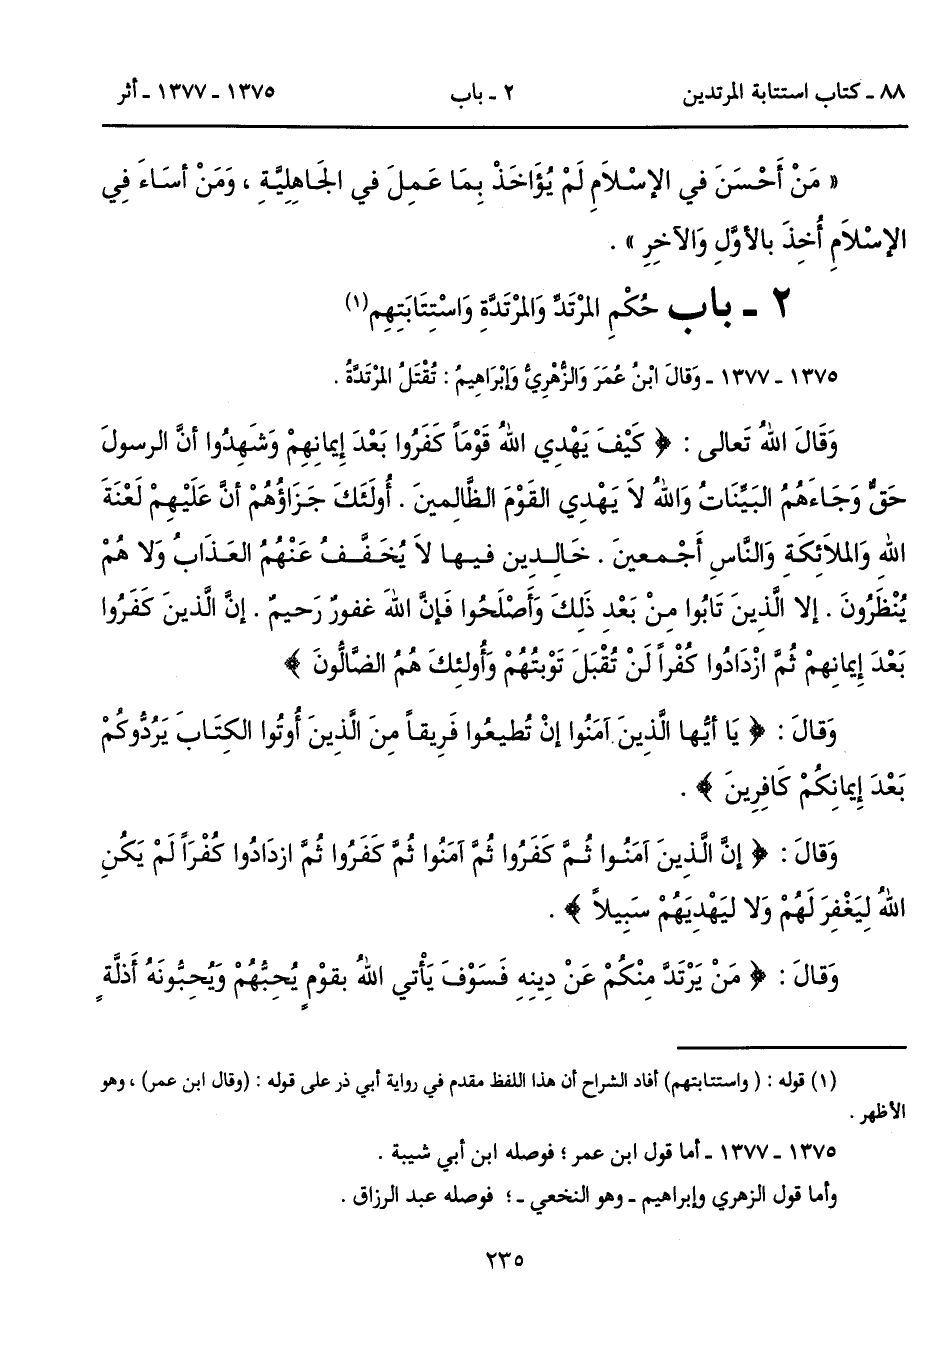 ٨٨ ـ كتاب استتابة المرتدين ٢ ـ باب ١٣٧٥ ـ ١٣٧٧ ـ أثر
« مَنْ أَحْسَنَ في الإسْلاَمِ لَمْ يُؤَاخَذْ بِمَا عَمِلَ في الجَاهِلِيَّةِ ، وَمَنْ أسَاءَ فِي
الإسْلاَمِ أُخِذَ بالأوَّلِ وَالآخِرِ » .
٢ ـ باب حُكْمِ المُرْتَدِّ وَالمُرْتَدَّةِ وَاسْتِتَابَتِهِم(١)
١٣٧٥ ـ ١٣٧٧ ـ وَقَالَ ابْنُ عُمَرَ وَالزُّهْرِيُّ وَإبْرَاهِيمُ : تُقْتَلُ المُرْتَدَّةُ .
وَقَالَ اللهُ تَعالى : ﴿ كَيْفَ يَهْدِي اللهُ قَوْمَاً كَفَرُوا بَعْدَ إيمانِهِمْ وَشَهِدُوا أنَّ الرسولَ
حَقٌّ وَجَاءَهُمُ البَيِّنَاتُ وَاللهُ لاَ يَهْدِي القَوْمَ الظَّالِمينَ . أُولَئكَ جَزَاؤُهُمْ أنَّ عَلَيْهِمْ لَعْنَةَ
اللهِ وَالمَلاَئِكَةِ وَالنَّاسِ أَجْمعينَ . خَالِدِين فيها لاَ يُخَفَّفُ عَنْهُمُ العَذَابُ وَلا هُمْ
يُنْظَرُونَ . إلا الَّذِينَ تَابُوا مِنْ بَعْدِ ذَلِكَ وَأَصْلَحُوا فَإنَّ اللهَ غَفورٌ رَحيمٌ . إنَّ الَّذينَ كَفَرُوا
بَعْدَ إيمانِهِمْ ثُمَّ ازْدَادُوا كُفْراً لَنْ تُقْبَلَ تَوْبَتُهُمْ وَأُولئِكَ هُمُ الضَّالُّونَ ﴾
وَقَالَ : ﴿ يَا أيُّها الَّذِينَ آمَنُوا إنْ تُطيعُوا فَرِيقاً مِنَ الَّذِينَ أُوتُوا الكِتَابَ يَرُدُّوكُمْ
بَعْدَ إيمانِكُمْ كَافِرِينَ ﴾ .
وَقالَ : ﴿ إنَّ الَّذِينَ آمَنُوا ثُمَّ كَفَرُوا ثُمَّ آمَنُوا ثُمَّ كَفَرُوا ثُمَّ ازدَادُوا كُفْرَاً لَمْ يَكُنِ
اللهُ لِيَغْفِرَ لَهُمْ وَلا ليَهْدِيَهُمْ سَبِيلاً ﴾ .
وَقَالَ : ﴿ مَنْ يَرْتَدَّ مِنْكُمْ عَنْ دِينِهِ فَسَوْفَ يَأْتي اللهُ بقَوْمٍ يُحِبُّهُمْ وَيُحِبُّونَهُ أَذلَّةٍ
(١) قوله : ( واستتابتهم) أفاد الشراح أن هذا اللفظ مقدم في رواية أبي ذر على قوله : (وقال ابن عمر) ، وهو
الأظهر .
١٣٧٥ ـ ١٣٧٧ ـ أما قول ابن عمر ؛ فوصله ابن أبي شيبة .
وأما قول الزهري وإبراهيم ـ وهو النخعي ـ ؛ فوصله عبد الرزاق .
٢٣٥